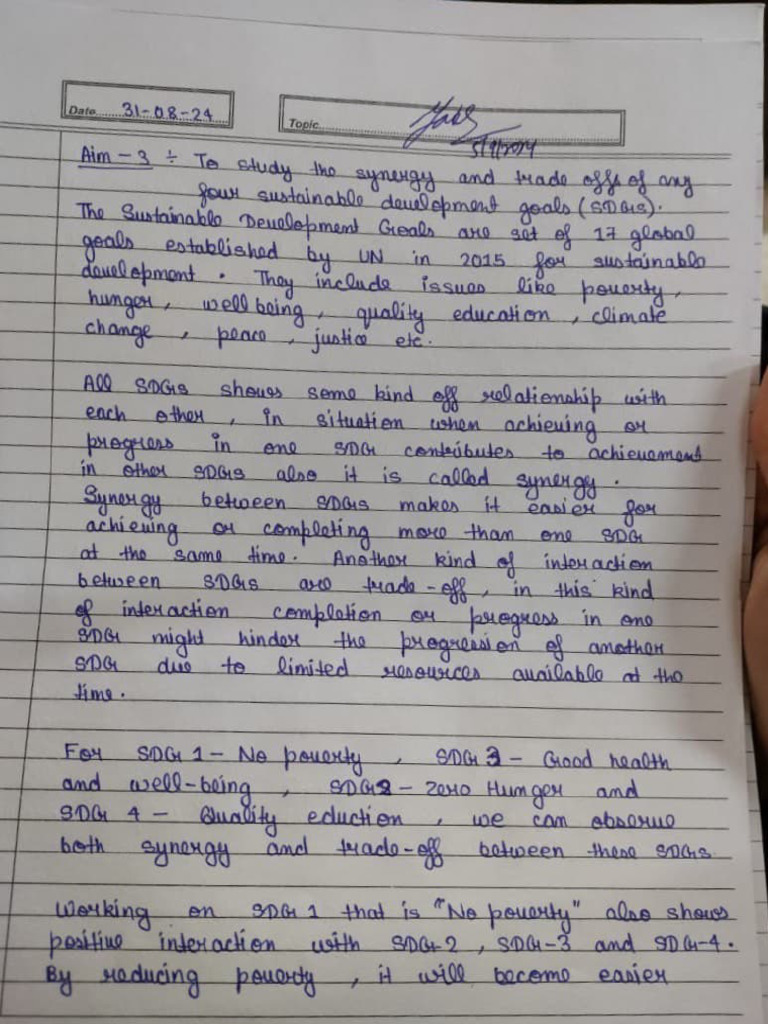 Date 31-08-24
Topic
5/9/2024
Aim - 3 ÷ To study the synergy and trade offs of any
four sustainable development goals (SDGs).
The Sustainable Development Goals are set of 17 global
goals established by UN in 2015 for sustainable
development. They include issues like poverty,
hunger, well being, quality education, climate
change, peace, justice etc.
All SDGs shows some kind off relationship with
each other, in situation when achieving or
progress in one SDG contributes to achievement
in other SDGs also it is called synergy.
Synergy between SDGs makes it easier for
achieving or completing more than one SDG
at the same time. Another kind of interaction
between SDGs are trade-off, in this kind
of interaction completion or progress in one
SDG might hinder the progression of another
SDG due to limited resources available at the
time.
For SDG 1 - No poverty, SDG 3 - Good health
and well-being, SDG 2 - Zero Hunger and
SDG 4 - Quality eduction, we can observe
both synergy and trade-off between these SDGs
Working on SDG 1 that is "No poverty" also shows
positive interaction with SDG-2, SDG-3 and SDG-4.
By reducing poverty, it will become easier